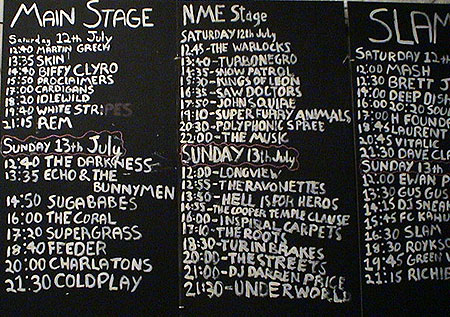 MAIN STAGE
Saturday 12th July
12:40 MARTIN GRECH
13:35 SKIN
14:40 BIFFY CLYRO
15:50 PROCLAIMERS
17:00 CARDIGANS
18:20 IDLEWILD
19:40 WHITE STRIPES
21:15 REM
SUNDAY 13th July
12:40 THE DARKNESS
13:35 ECHO & THE
BUNNYMEN
14:50 SUGABABES
16:00 THE CORAL
17:20 SUPERGRASS
18:40 FEEDER
20:00 CHARLATONS
21:30 COLDPLAY
NME Stage
SATURDAY 12th July
12:45-THE WARLOCKS
13:40-TURBONEGRO
14:35-SNOW PATROL
15:30-KINGS OF LEON
16:35-SAW DOCTORS
17:50-JOHN SQUIRE
19:10-SUPER FURRY ANIMALS
20:30-POLYPHONIC SPREE
22:00-THE MUSIC
SUNDAY 13th July
12:00-LONGVIEW
12:55-THE RAVONETTES
13:50-HELL IS FOR HEROS
14:55-THE COOPER TEMPLE CLAUSE
16:00-INSPIRAL CARPETS
17:10-THE ROOTS
18:30-TURIN BRAKES
20:00-THE STREETS
21:00-DJ DARREN PRICE
21:30-UNDERWORLD
SLAM
SATURDAY 12
12:00 MASH
12:30 BRETT J
14:00 DEEP DISH
16:00 2020 SOU
17:00 H FOUNDA
18:45 LAURENT
20:45 VITALIC
21:30 DAVE CLA
SUNDAY 13th
12:00 EWAN P
13:30 GUS GUS
14:15 DJ SNEAK
15:45 FC KAHU
16:30 SLAM
18:30 ROYKSO
19:45 GREEN V
21:15 RICHIE